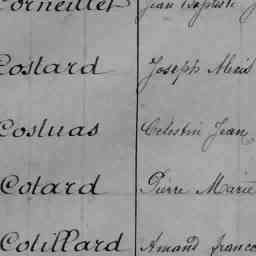 Corneillet Jean Baptiste
Costard Joseph Aimé
Costuas Célestin Jean
Cotard Pierre Marie
Cotillard Amand franco